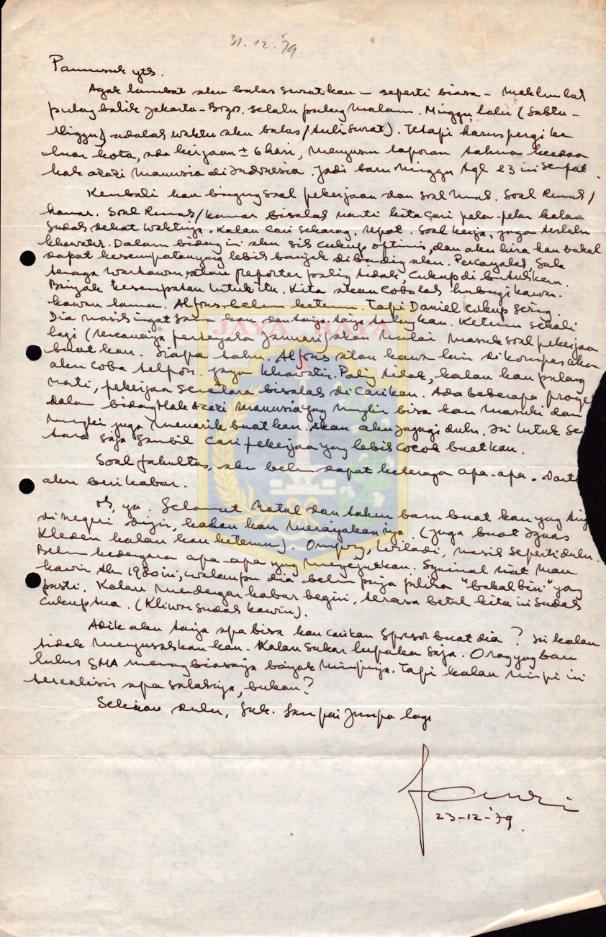 31.12.'79
Pamusuk yts.
Agak lambat aku balas suratkau – seperti biasa – maklumlah
pulang balik Jakarta-Bogor selalu pulang malam. Minggu lalu (Sabtu-
Minggu) adalah waktu aku balas/tulis surat). Tetapi harus pergi ke
luar kota, ada kerjaan ± 6 hari, menyusun laporan tahunan keadaan
hak azazi manusia di Indonesia. Jadi baru Minggu tgl 23 ini sempat.
Kembali kau bingung soal pekerjaan dan soal rumah. Soal Rumah/
kamar. Soal Rumah/kamar bisalah nanti kita cari pelan-pelan kalau
sudah dekat waktunya. Kalau cari sekarang, repot. Soal kerja, jangan terlalu
khawatir. Dalam bidang ini aku sih cukup optimis, dan aku kira kau bakal
dapat kesempatan yang lebih banyak dibanding aku. Percayalah, Suk
tenaga wartawan atau Reporter paling tidak cukup dibutuhkan.
Banyak kesempatan untuk itu. Kita akan cobalah hubungi kawan-
kawan lama. Alfons belum ketemu. Tapi Daniel cukup sering.
Dia masih ingat sama kau dan tanya-tanya tentang kau. Ketemu sekali
lagi (rencananya pertengahan Januari) akan mulai masuk soal pekerjaan
buat kau. Siapa tahu. Alfons atau kawan lain di kompas akan
akan coba telpon. Jangan khawatir. Paling tidak, kalau kau pulang
nanti, pekerjaan sementara bisalah dicarikan. Ada beberapa proyek
dalam bidang Hak Azazi Manusia yang mungkin bisa kau masuki dan
mungkin juga menarik buat kau. Akan aku jajagi dulu. Ini untuk se
tara saja sambil cari pekerjaan yang lebih cocok buat kau.
Soal fakultas, aku belum dapat keterangan apa-apa.
aku beri kabar.
Oh, ya. Selamat Natal dan tahun baru buat kau yang
di negeri dingin, kalau kau merayakannya. (juga buat Ignas
Kleden kalau kau ketemu). Ompung, Wiladi, masih seperti dulu.
Belum kedengaran apa-apa yang mengejutkan. Syamsul niat mau
kawin thn 1980 ini, walaupun dia belum punya pilihan "bakal bini" yang
pasti. Kalau mendengar kabar begini, terasa betul kita ini sudah
cukup tua. (Kliwon sudah kawin).
Adik aku tanya apa bisa kau carikan sponsor buat dia? Ini kalau
tidak menyusahkan kau. Kalau sukar lupakan saja. Orang yang baru
lulus SMA memang biasanya banyak mimpinya. Tapi kalau mimpi ini
terealisir apa salahnya, bukan?
Sekian dulu, Suk. Sampai jumpa lagi
23-12-'79.
JAYA RAYA